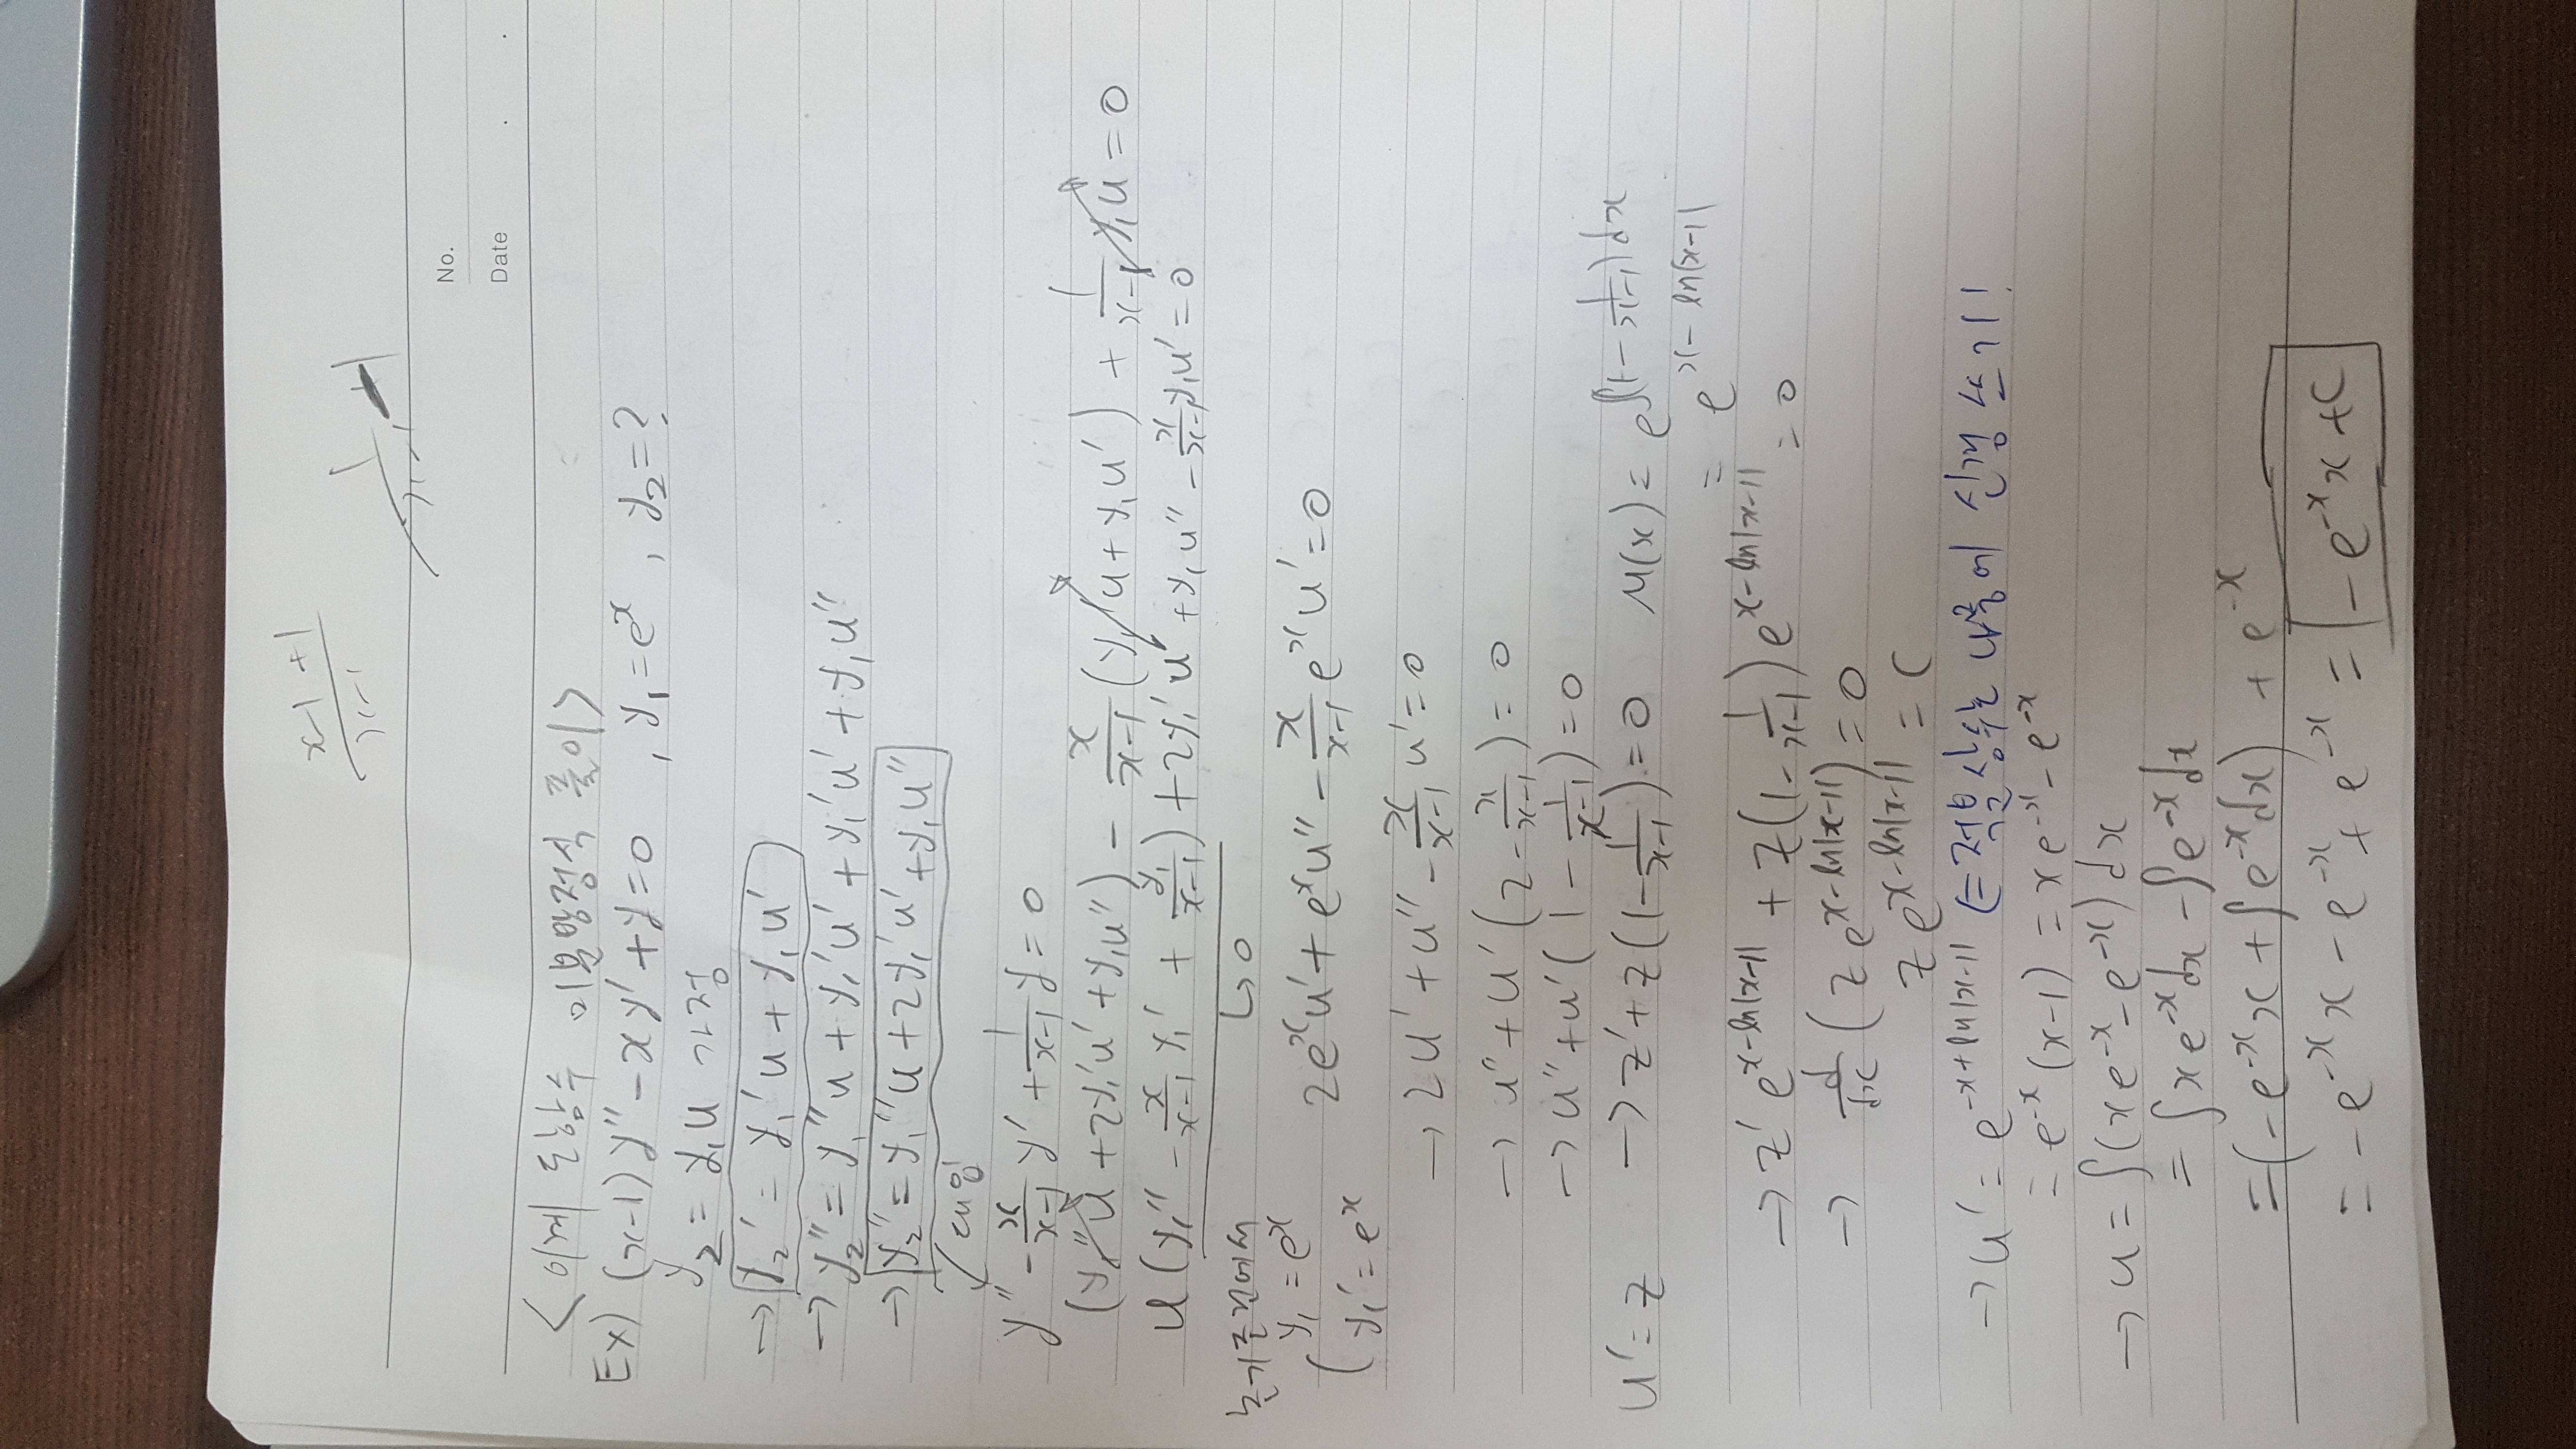 x-1 +1
x-1
1
x-1
No.
Date
<이계 도함수 미분방정식 풀이>
Ex) (x-1)y″ - xy′ + y = 0 , y₁ = eˣ , y₂ = ?
y₂ = y₁u 가정
→ y₂′ = y₁′u + y₁u′
→ y₂″ = y₁″u + y₁′u′ + y₁′u′ + y₁u″
→ y₂″ = y₁″u + 2y₁′u′ + y₁u″
↙ 대입
y″ - x/(x-1) y′ + 1/(x-1) y = 0
(y₁″u + 2y₁′u′ + y₁u″) - x/(x-1) (y₁′u + y₁u′) + 1/(x-1) y₁u = 0
u(y₁″ - x/(x-1) y₁′ + y₁/(x-1)) + 2y₁′u′ + y₁u″ - x/(x-1) y₁u′ = 0
↳ 0
초기조건에서
y₁ = eˣ
y₁′ = eˣ
2eˣu′ + eˣu″ - x/(x-1) eˣu′ = 0
→ 2u′ + u″ - x/(x-1) u′ = 0
→ u″ + u′(2 - x/(x-1)) = 0
→ u″ + u′(1 - 1/(x-1)) = 0
u′ = z → z′ + z(1 - 1/(x-1)) = 0 M(x) = e^∫(1 - 1/(x-1))dx
= e^(x - ln|x-1|)
→ z′ e^(x-ln|x-1|) + z(1 - 1/(x-1)) e^(x-ln|x-1|) = 0
→ d/dx (z e^(x-ln|x-1|)) = 0
z e^(x-ln|x-1|) = C
→ u′ = e^(-x+ln|x-1|) ⇐ 적분상수는 나중에 신경 쓰기!
= e^-x (x-1) = xe^-x - e^-x
→ u = ∫(xe^-x - e^-x)dx
= ∫xe^-x dx - ∫e^-x dx
= (-e^-x x + ∫e^-x dx) + e^-x
= -e^-x x - e^-x + e^-x = -e^-x x + C